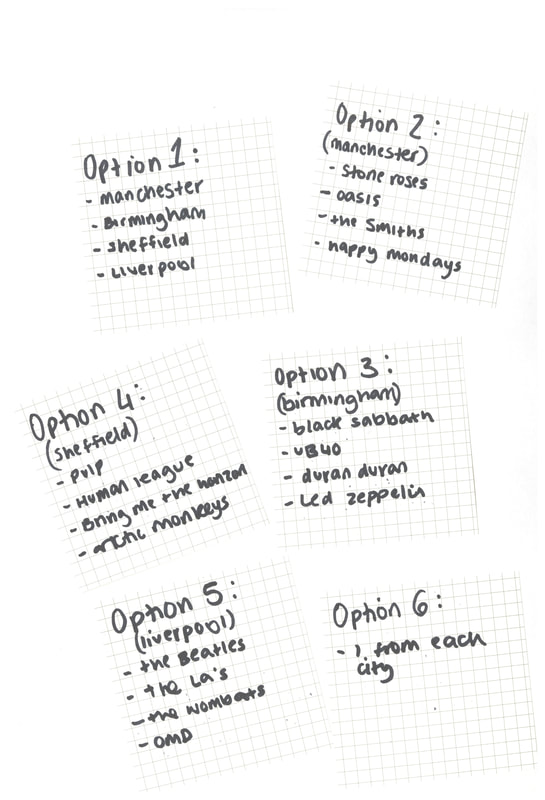 Option 1:
- manchester
- Birmingham
- sheffield
- Liverpool
Option 2:
(manchester)
- stone roses
- oasis
- the smiths
- happy mondays
Option 3:
(birmingham)
- black sabbath
- UB40
- duran duran
- Led zeppelin
Option 4:
(sheffield)
- Pulp
- Human league
- Bring me the horizon
- arctic monkeys
Option 5:
(liverpool)
- the Beatles
- the La's
- the wombats
- OMD
Option 6:
- 1 from each
city